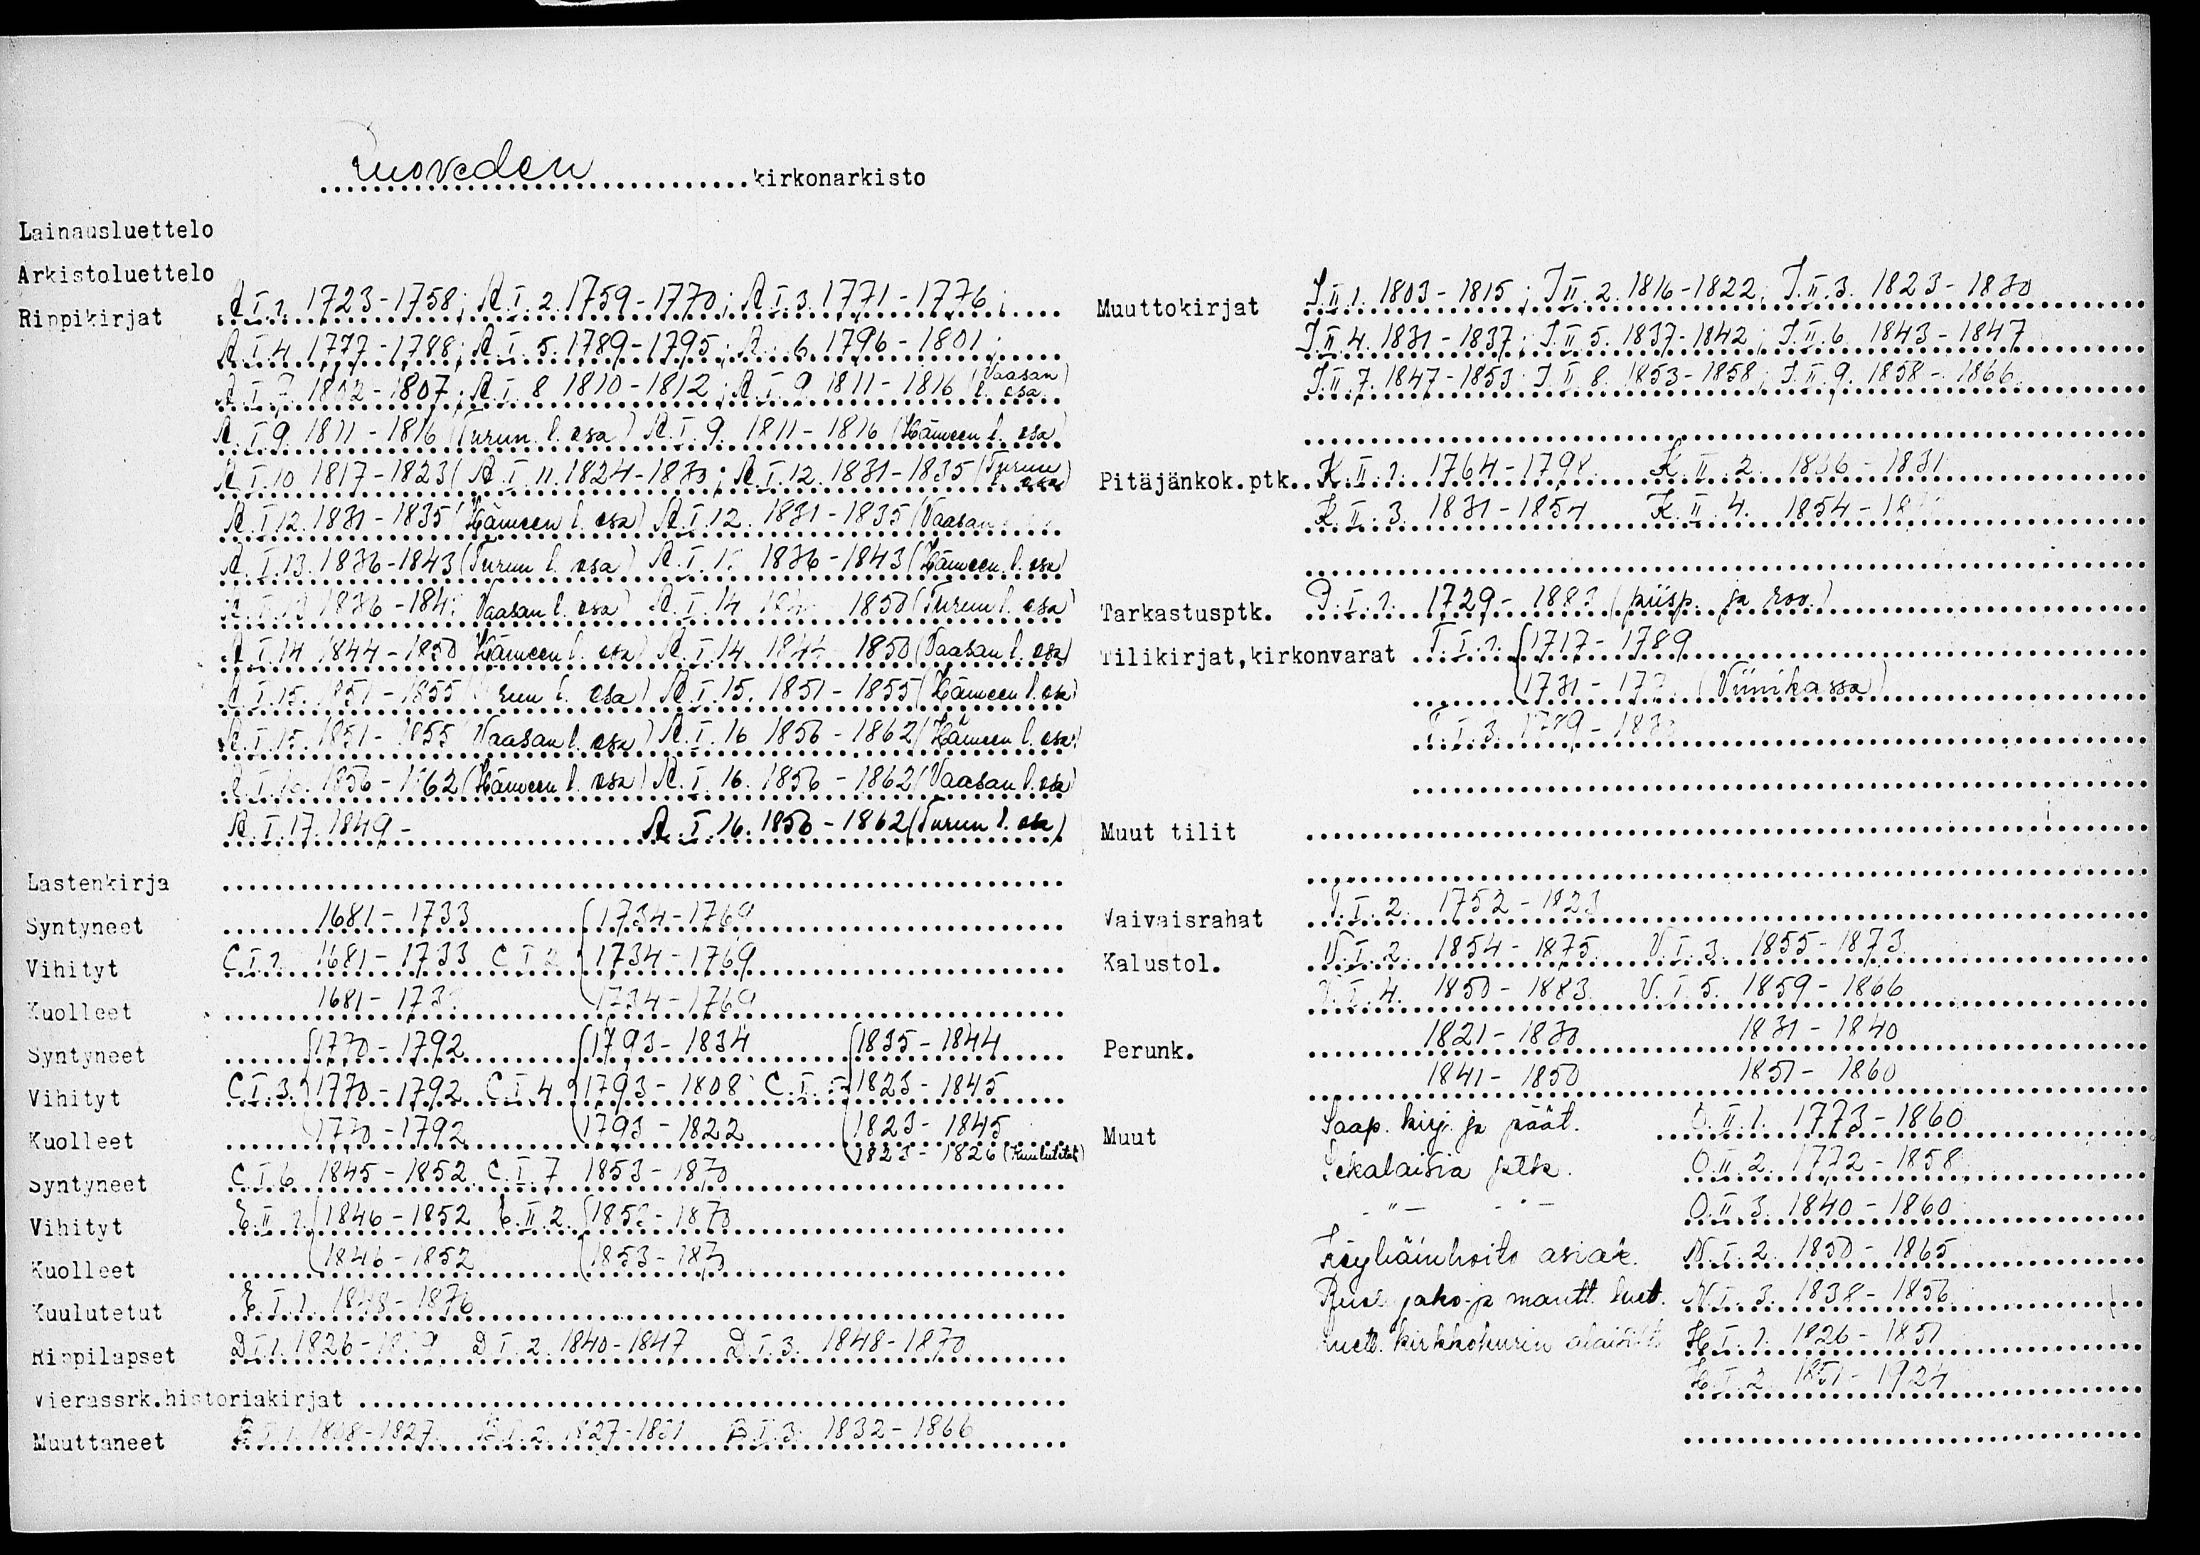 Ruoveden kirkonarkisto
Lainausluettelo
Arkistoluettelo
Rippikirjat A.I.1. 1723-1758; A.I.2. 1759-1770; A.I.3. 1771-1776;
A.I.4. 1777-1788; A.I.5. 1789-1795; A. 6. 1796-1801;
A.I.7. 1802-1807; A.I.8 1810-1812; A.I.9 1811-1816 (Vaasan l. osa)
A.I.9. 1811-1816 (Turun l. osa) A.I.9. 1811-1816 (Hämeen l. osa)
A.I.10 1817-1823( A.I.11. 1824-1830; A.I.12. 1831-1835 (Turun l. osa)
A.I.12. 1831-1835 (Hämeen l. osa) A.I.12. 1831-1835 (Vaasan
A.I.13. 1836-1843 (Turun l. osa) A.I.1 1836-1843 (Hämeen l. osa)
A.I.13 1836-184 Vaasan l. osa) A.I.14 1850 (Turun l. osa)
A.I.14 1844-1850 Hämeen l. osa) A.I.14. 1844 1850 (Vaasan l. osa)
A.I.15. 1851-1855 run l. osa) A.I.15. 1851-1855 (Hämeen l. osa)
A.I.15. 1851-1855 Vaasan l. osa) A.I.16 1856-1862 (Hämeen l. osa)
A.I.16. 1856-1862 (Hämeen l. osa) A.I.16. 1856-1862 (Vaasan l. osa)
A.I.17. 1849- A.I.16. 1856-1862 (Turun l. osa)
Lastenkirja
Syntyneet 1681-1733 1734-1769
Vihityt C.I.1. 1681-1733 C.I.2 1734-1769
Kuolleet 1681-173 1734-1769
Syntyneet 1770-1792 1793-1834 1835-1844
Vihityt C.I.3. 1770-1792 C.I.4 1793-1808 C.I.5 1823-1845
Kuolleet 1770-1792 1793-1822 1823-1845
1823-1826 (Kuulutet)
Syntyneet C.I.6 1845-1852 C.I.7 1853-1870
Vihityt E.II.1. 1846-1852 E.II.2. 1853-1870
Kuolleet 1846-1852 1853-1870
Kuulutetut E.I.1. 1848-1876
Rippilapset D.I.1. 1826-1839 D.I.2. 1840-1847 D.I.3. 1848-1870
Vierassrk.historiakirjat
Muuttaneet B.I.1. 1808-1827 B.I.2. 1827-1831 B.I.3. 1832-1866
Muuttokirjat J.II.1. 1803-1815; J.II.2. 1816-1822; J.II.3. 1823-1830
J.II.4. 1831-1837; J.II.5. 1837-1842; J.II.6. 1843-1847
J.II.7. 1847-1853; J.II.8. 1853-1858; J.II.9. 1858-1866
Pitäjänkok.ptk. K.II.1. 1764-1798. K.II.2. 1806-1831
K.II.3. 1831-1854 K.II.4. 1854-18
Tarkastusptk. J.I.1. 1729-1883 (piisp. ja rov.)
Tilikirjat,kirkonvarat T.I.1. 1717-1789
1731-177 (Viinikassa)
T.I.3. 1789-183
Muut tilit
Vaivaisrahat T.I.2. 1752-1823
Kalustol. V.I.2. 1854-1875. V.I.3. 1855-1873
V.I.4. 1850-1883 V.I.5. 1859-1866
Perunk. 1821-1830 1831-1840
1841-1850 1851-1860
Muut Saap. kirj. ja päät. O.II.1. 1773-1860
Sekalaisia ptk. O.II.2. 1772-1858
-"- -"- O.II.3. 1840-1860
Köyhäinhoito asiak. N.I.2. 1850-1865
Ruo jako ja mantt. luet. N.I.3. 1838-1856
luett. kirkkokurin alaisi H.I.1. 1826-1851
H.I.2. 1851-1924